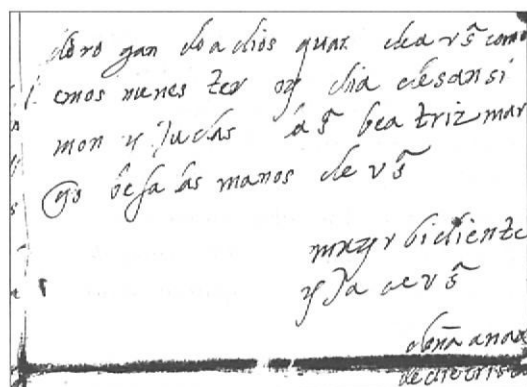 doro gan do a dios guar dea vs como
emos nenes ter oy dia de san si
mon y Judas a s bea triz mar
qs besa las manos de vs
muy obidiente
yja de vs
doña ana